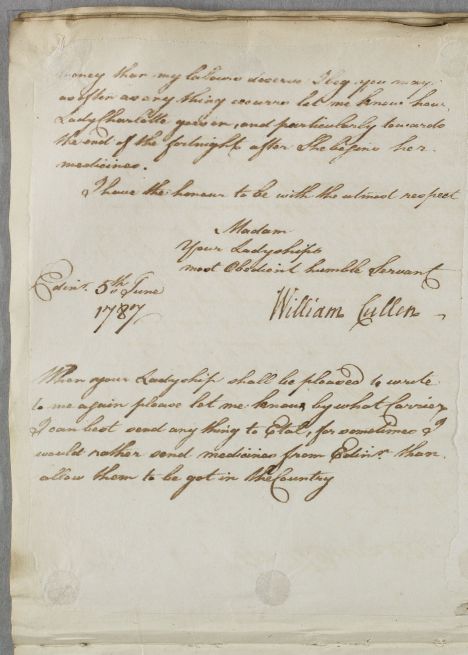 money than my labours deserve. I beg you may
as often as any thing occurrs let me know how
Lady Charlotte goes on, and particularly towards
the end of the fortnight after She begins her
medicines.
I have the honour to be with the utmost respect
Madam
Your Ladyships
most Obedient humble Servant
Edinr. 5th June
1787
William Cullen
When your Ladyship shall be pleased to write
to me again please let me know, by what Carrier
I can best send any thing to Etal, for sometimes I
would rather send medicines from Edinr. than
allow them to be got in the Country